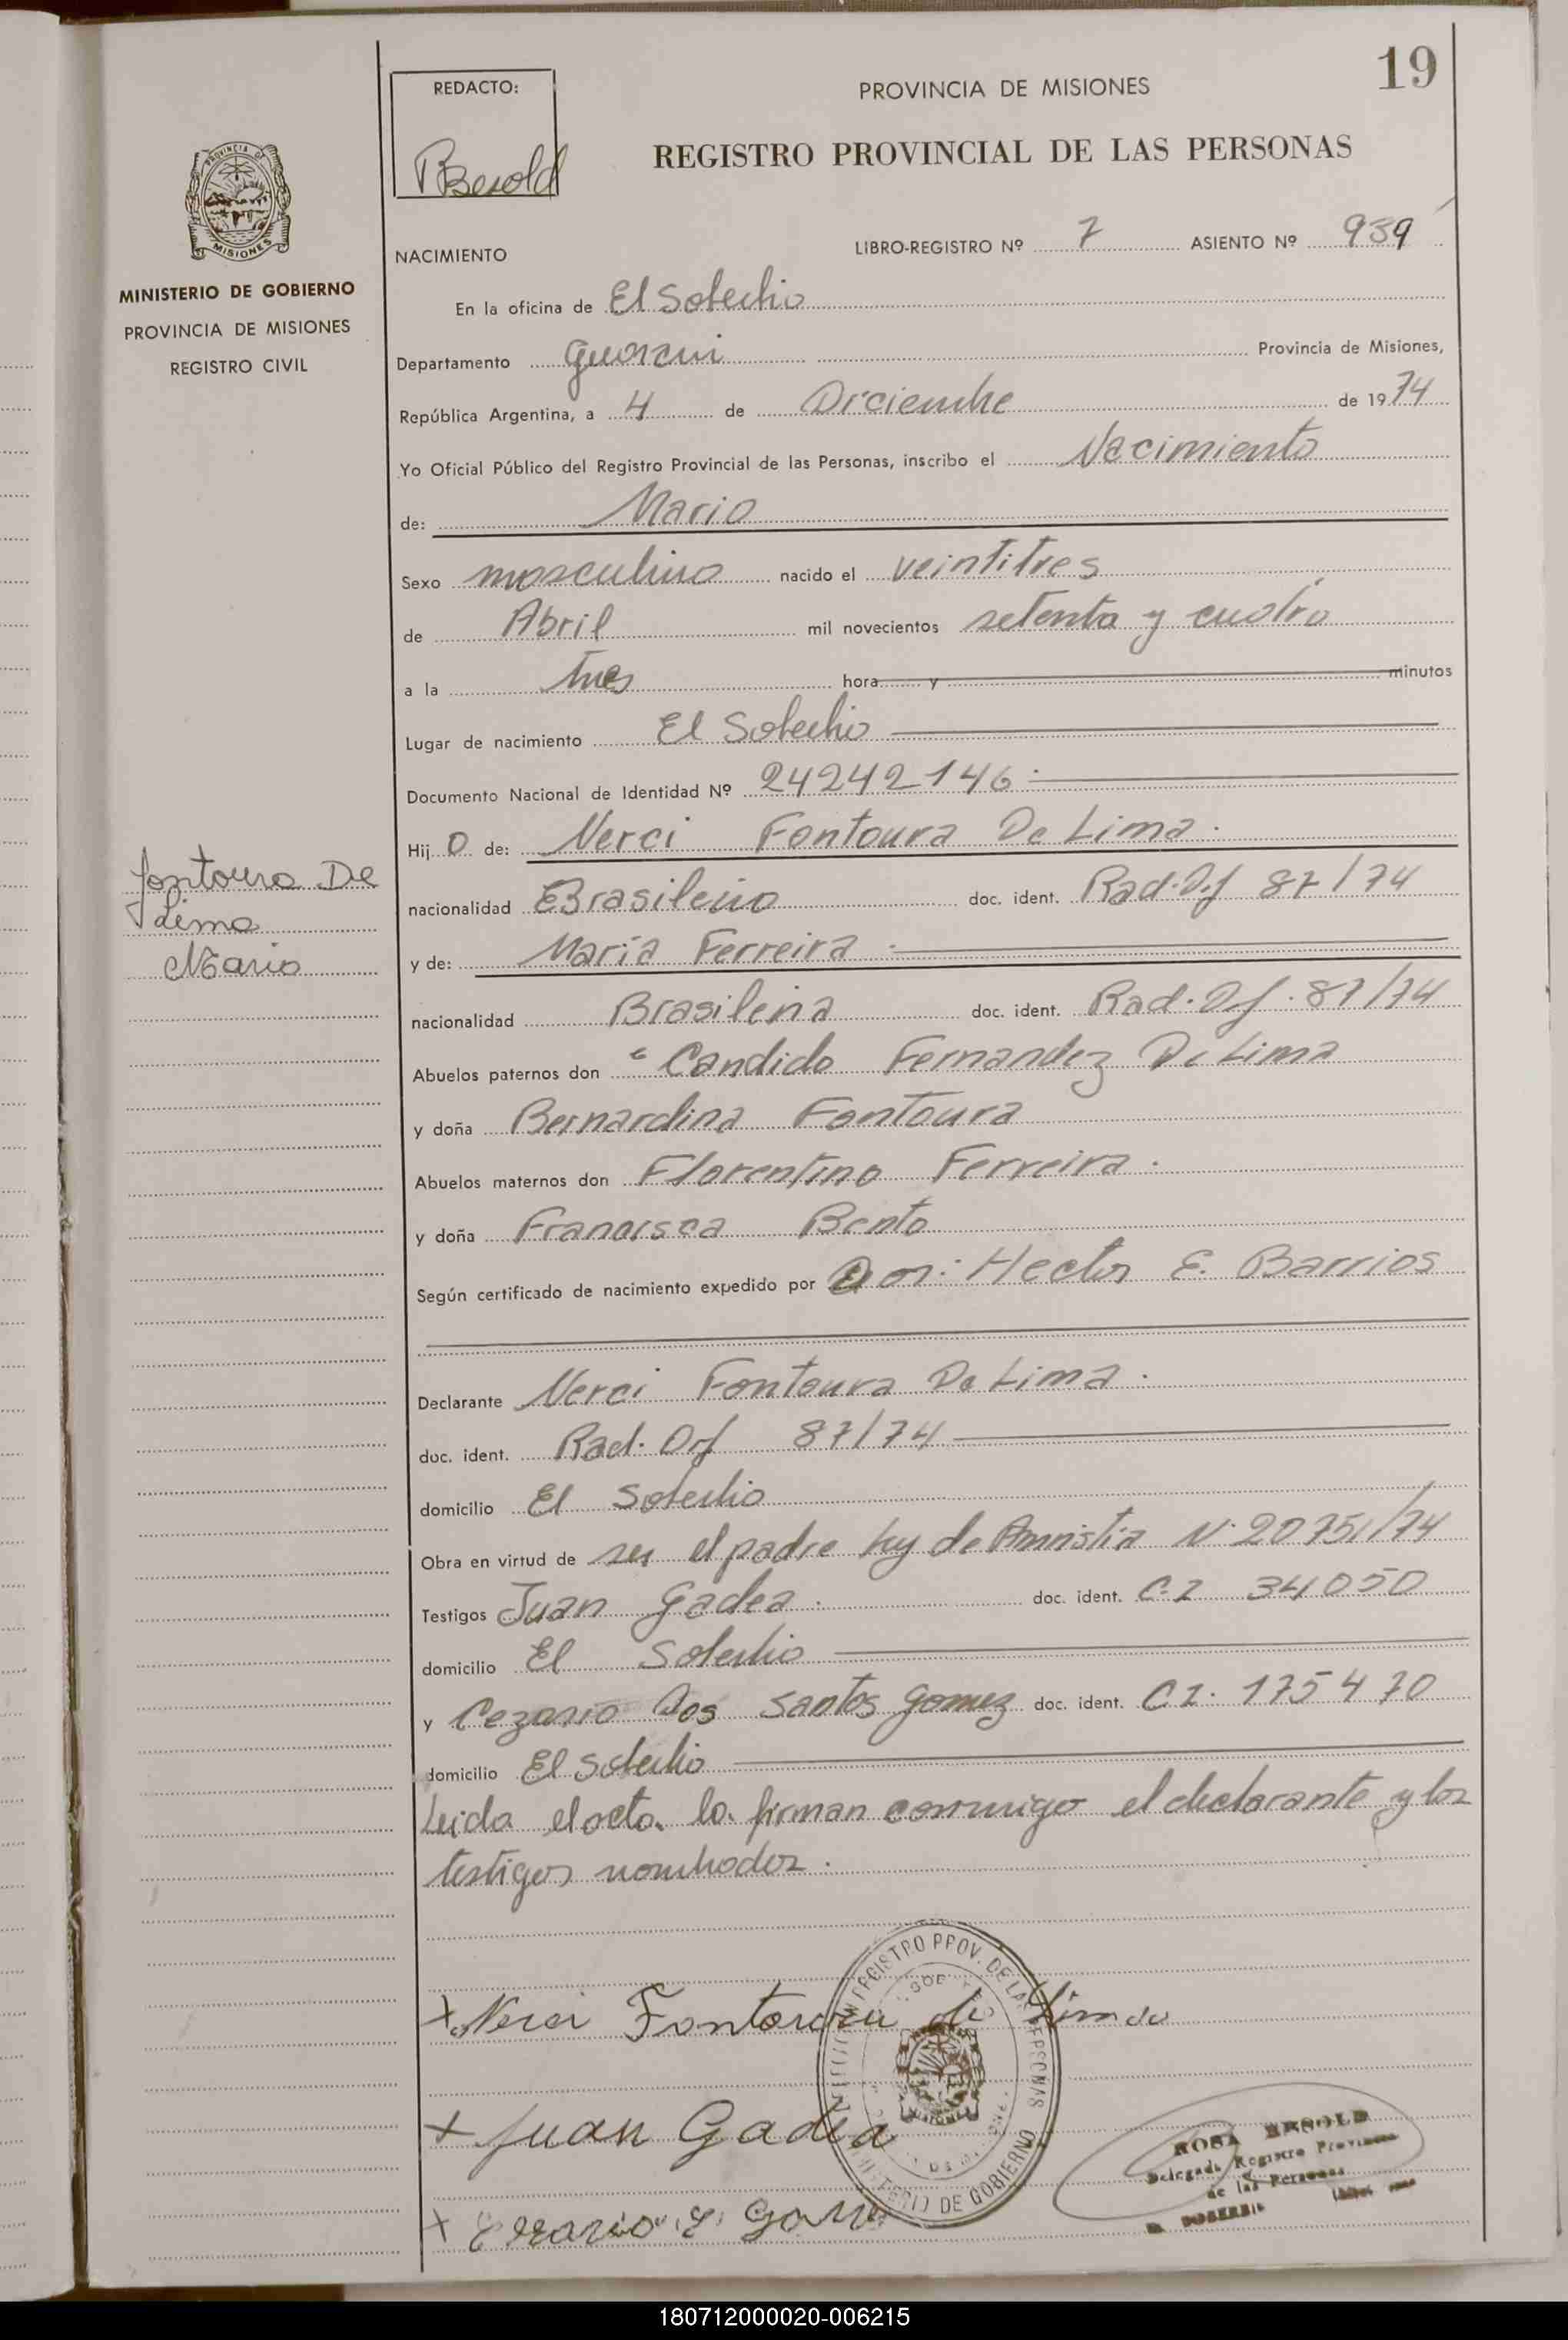 19
REDACTO:
PROVINCIA DE MISIONES
REGISTRO PROVINCIAL DE LAS PERSONAS
PROVINCIA DE
MISIONES
MINISTERIO DE GOBIERNO
PROVINCIA DE MISIONES
REGISTRO CIVIL
NACIMIENTO
LIBRO-REGISTRO Nº 7 ASIENTO Nº 939
En la oficina de El Soberbio
Departamento Guarani Provincia de Misiones,
República Argentina, a 4 de Diciembre de 1974
Yo Oficial Público del Registro Provincial de las Personas, inscribo el Nacimiento
de: Mario
Sexo masculino nacido el veintitres
de Abril mil novecientos setenta y cuatro
a la tres hora y minutos
Lugar de nacimiento El Soberbio
Documento Nacional de Identidad Nº 24242146
Hij o de: Nerci Fontoura De Lima
Fontoura De
Lima
Mario
nacionalidad Brasileño doc. ident. Rad. Of 87/74
y de: Maria Ferreira
nacionalidad Brasileña doc. ident. Rad. Of. 87/74
Abuelos paternos don Candido Fernandez De Lima
y doña Bernardina Fontoura
Abuelos maternos don Florentino Ferreira
y doña Francisca Bento
Según certificado de nacimiento expedido por Don: Hector E. Barrios
Declarante Nerci Fontoura De Lima
doc. ident. Rad. Of 87/74
domicilio El Soberbio
Obra en virtud de ser el padre ley de Amnistia Nº 20751/74
Testigos Juan Gadea doc. ident. C.I 34050
domicilio El Soberbio
y Cezario Dos Santos Gomez doc. ident. C I. 175470
domicilio El Soberbio
Leida el acta la firman conmigo el declarante y los
testigos nombrados.
REGISTRO PROV. DE LAS PERSONAS
MINISTERIO DE GOBIERNO
+ Nerci Fontoura de Lima
+ Juan Gadea
ROSA BESOLD
Delegada Registro Provincial
de las Personas
180712000020-006215